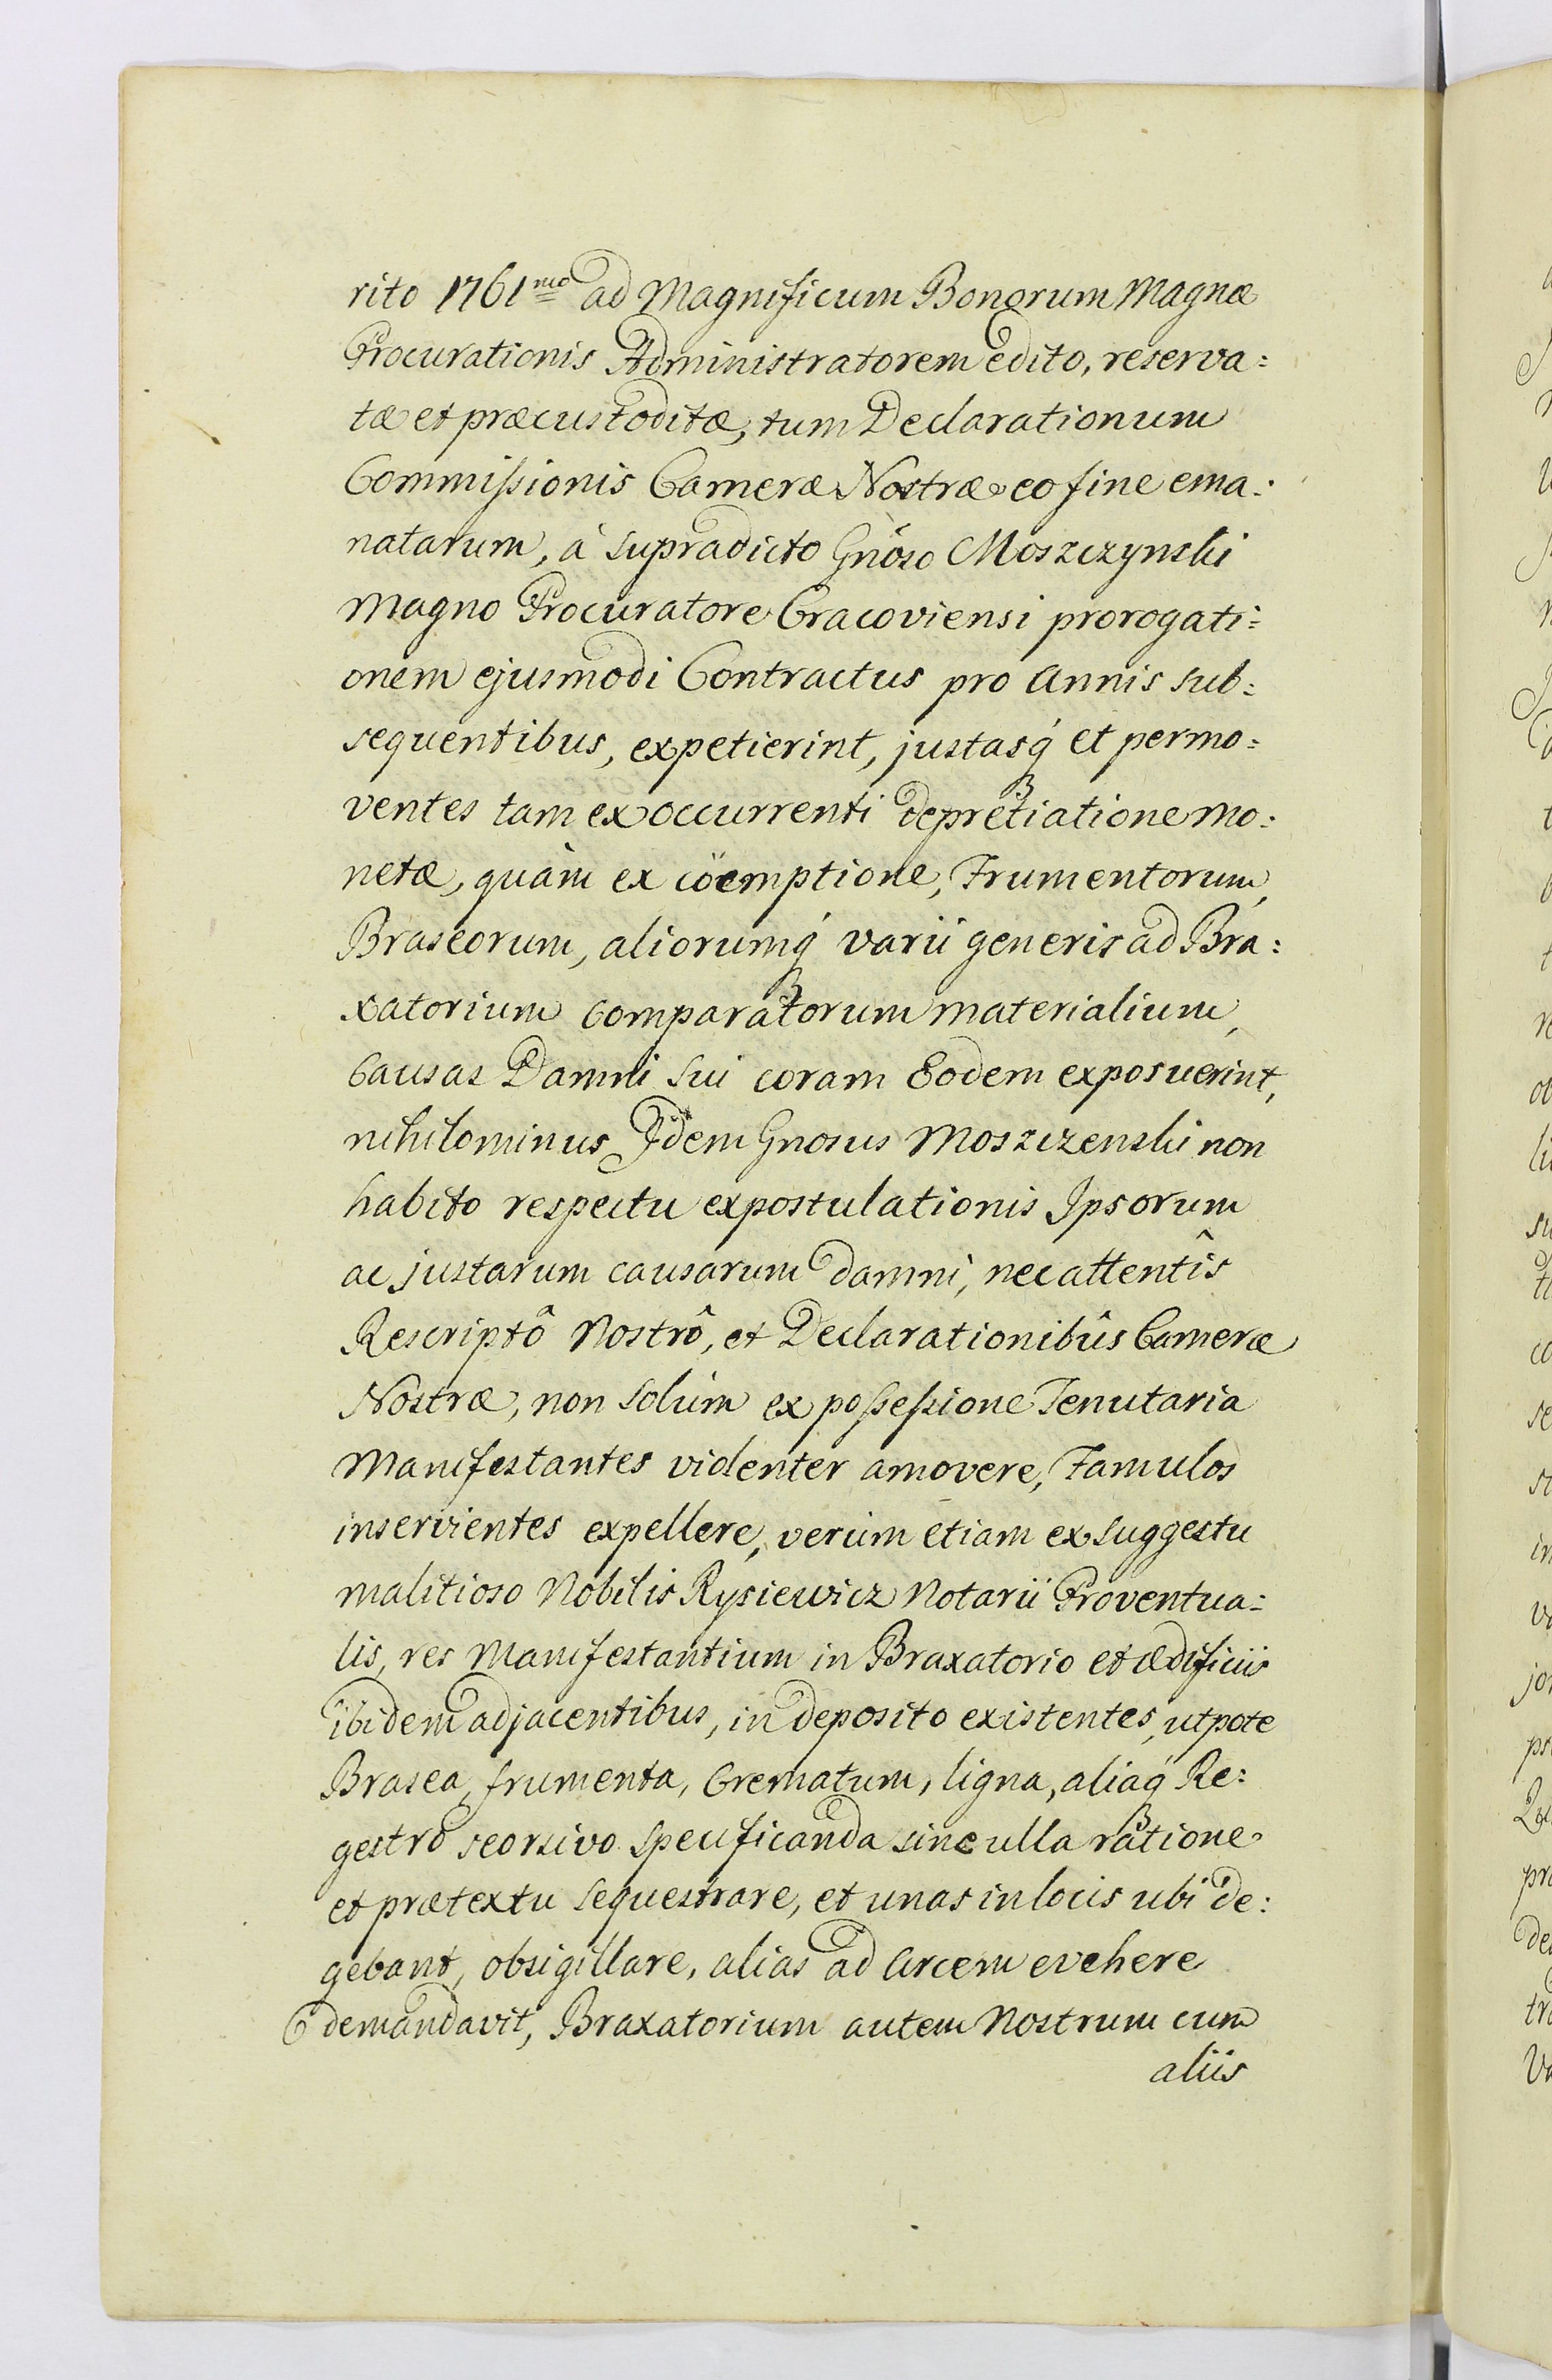 rito 1761mo ad Magnificum Bonorum Magnæ
Procurationis Administratorem edito, reserva=
tæ et præcustoditæ, tum Declarationum
Commissionis Cameræ Nostræ eo fine ema=
natarum, à supradicto Gnoso Moszczynski
Magno Procuratore Cracoviensi prorogati=
onem ejusmodi Contractus pro Annis sub=
sequentibus, expetierint, justasq́ et permo=
ventes tam ex occurrenti depretiatione mo=
netæ, quàm ex cöemptione, Frumentorum,
Braseorum, aliorumq́ varii generis ad Bra=
xatorium comparatorum materialium,
Causas Damni sui coram Eodem exposuerint,
nihilominus Idem Gnosus Moszczenski non
habito respectu expostulationis Ipsorum
ac justarum causarum damni, nec attentîs
Rescriptô Nostrô, et Declarationibûs Cameræ
Nostræ, non solùm ex possessione Tenutaria
Manifestantes violenter amovere, Famulos
inservientes expellere, verùm etiam ex suggestu
malitioso Nobilis Rysiewicz Notarii Proventua=
lis, res Manifestantium in Braxatorio et ædificiis
ibidem adjacentibus, in deposito existentes, utpote
Brasea, frumenta, Crematum, ligna, aliaq́ Re=
gestro seorsivo specificanda sine ulla ratione
et prætextu sequestrare, et unas in locis ubi de=
gebant, obsigillare, alias ad Arcem evehere
demandavit, Braxatorium autem Nostrum cum
aliis